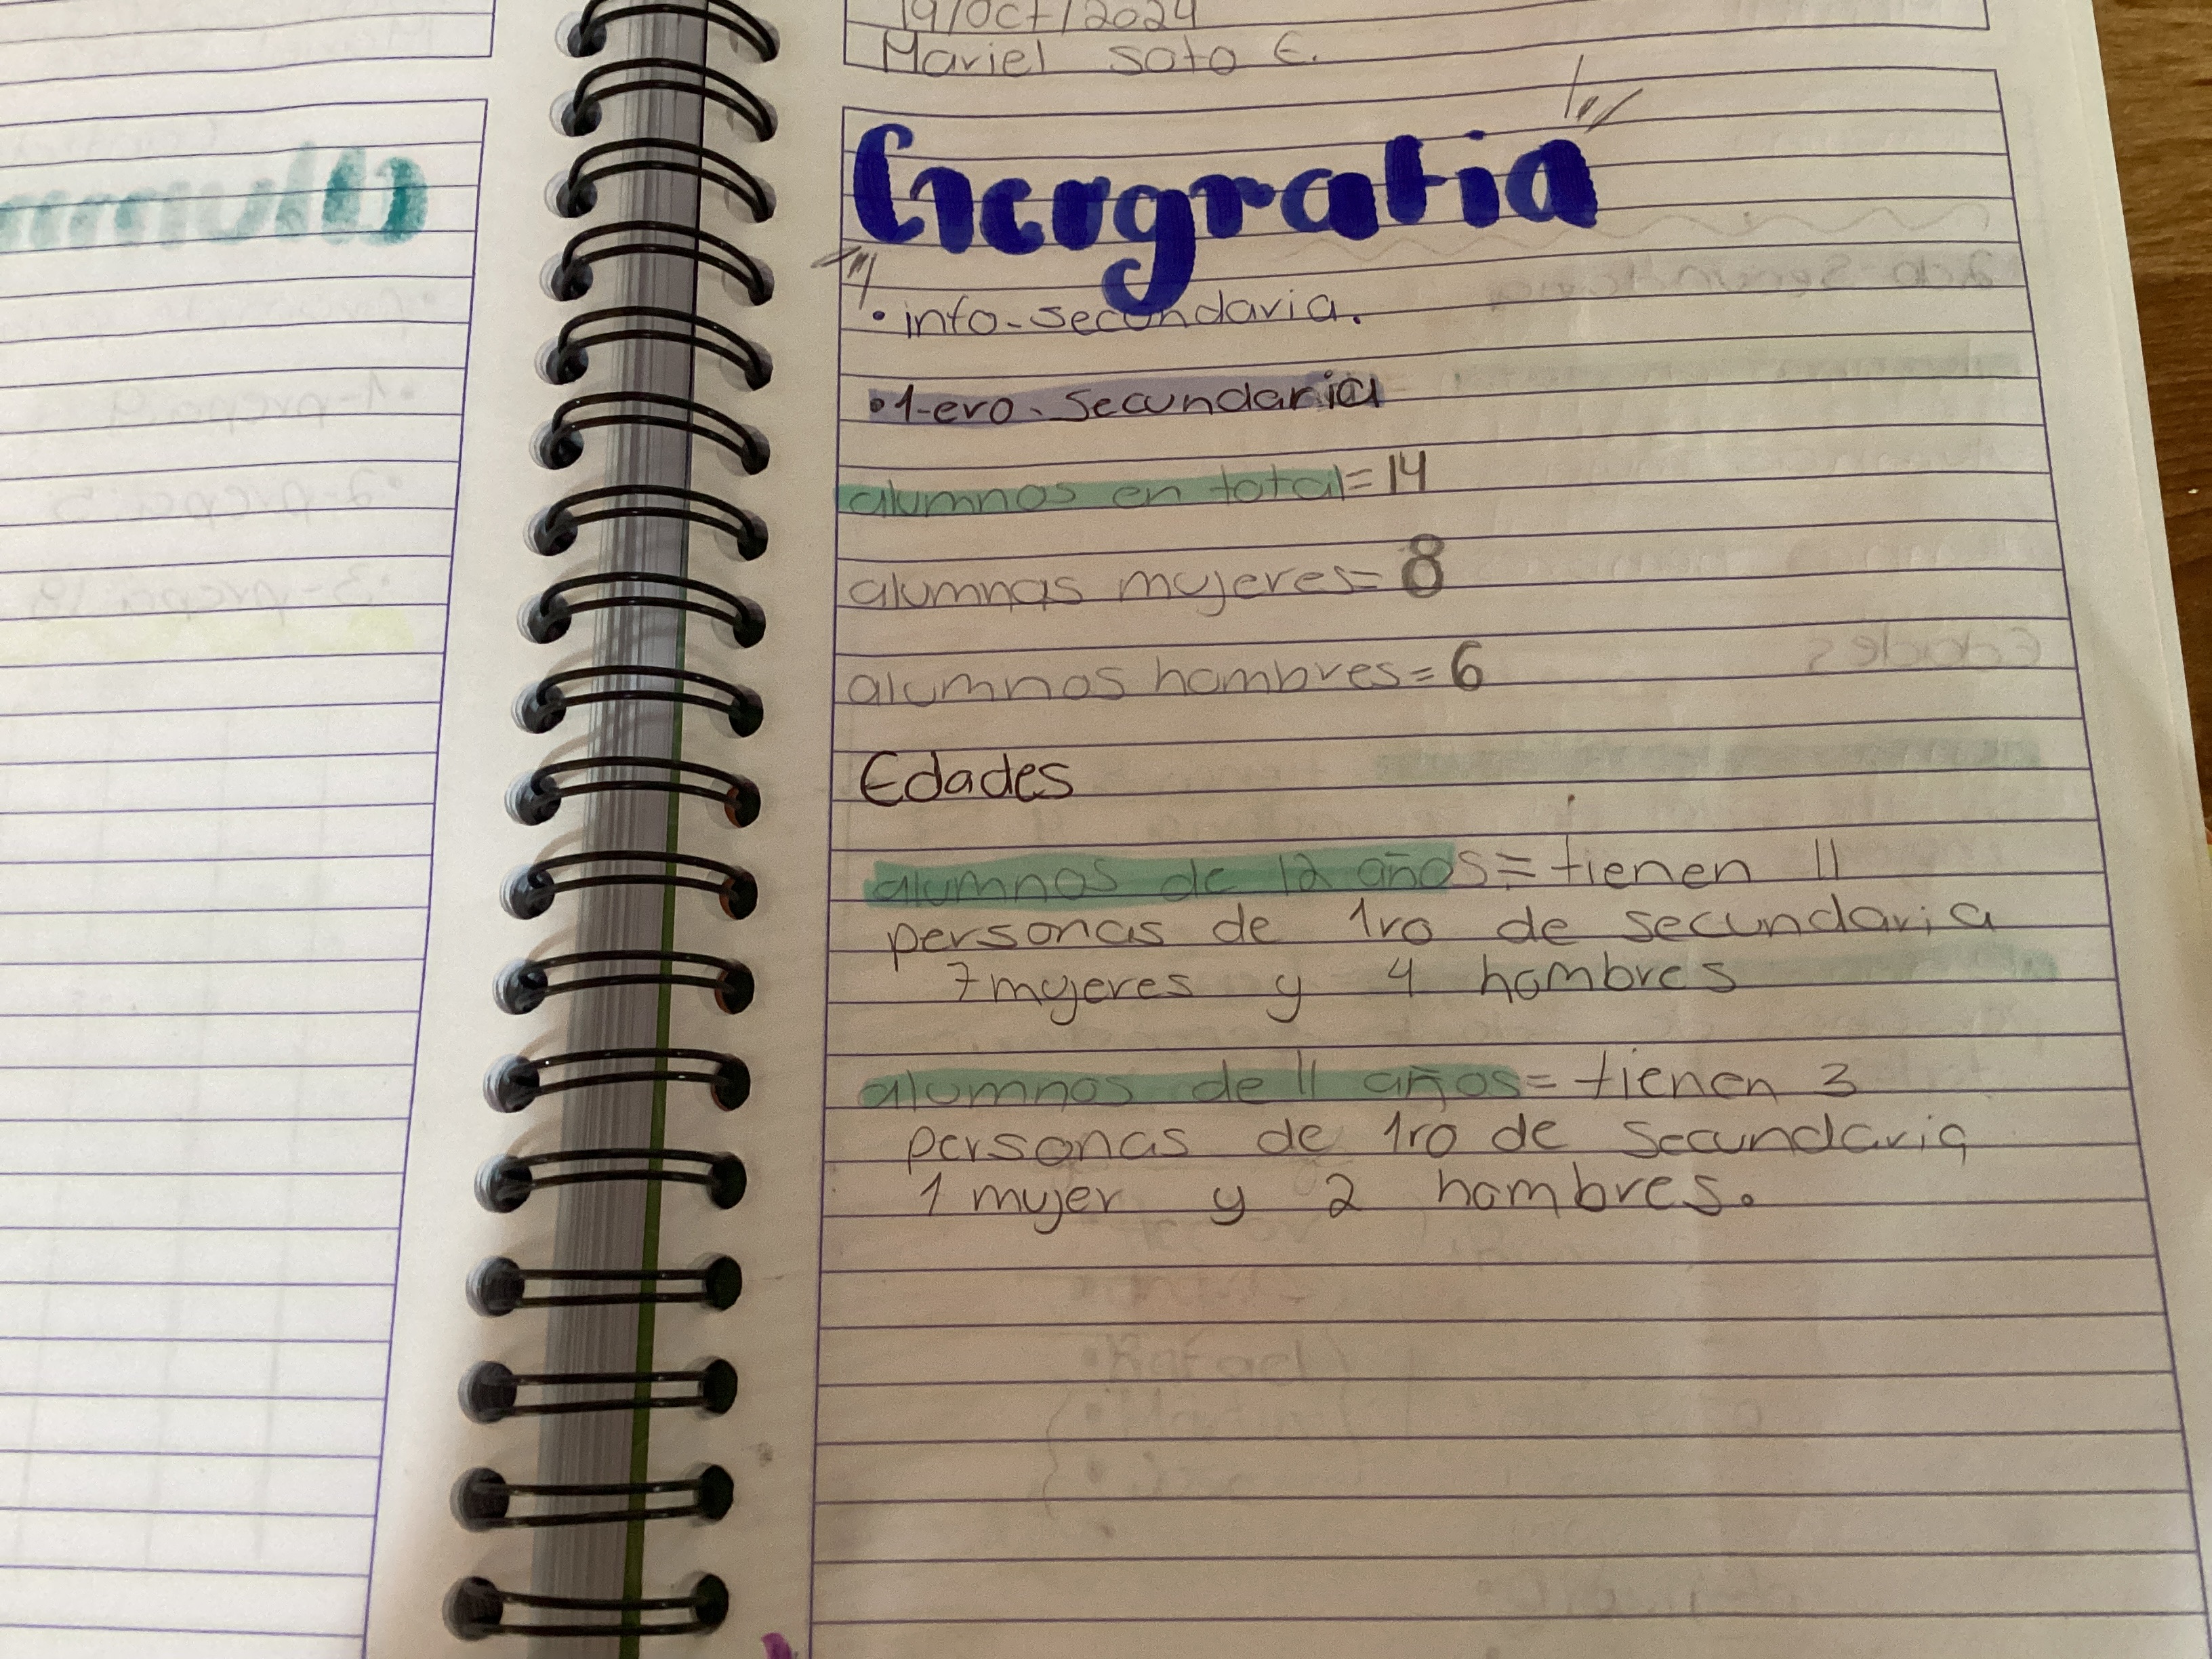 19/Oct/2024
Mariel Soto E.
Geografia
• info-secundaria.
• 1-ero. Secundaria
alumnos en total=14
alumnas mujeres= 8
alumnos hombres= 6
Edades
alumnos de 12 años= tienen 11
personas de 1ro de secundaria
7 mujeres y 4 hombres
alumnos de 11 años= tienen 3
personas de 1ro de secundaria
1 mujer y 2 hombres.